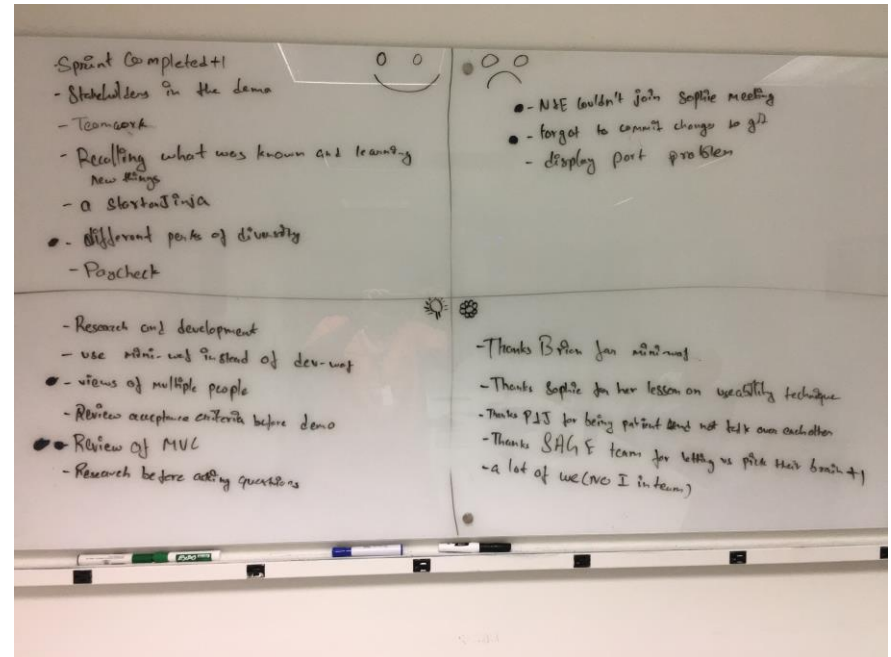 - Sprint Completed +1
- Stakeholders in the demo
- Teamwork
- Recalling what was known and learning
new things
- a Starton Jinja
- different perks of diversity
- Paycheck
- N&E couldn't join Sophie meeting
- forgot to commit change to git
- display port problem
- Research and development
- use mini-waf instead of dev-waf
- views of multiple people
- Review acceptance criteria before demo
- Review of MVC
- Research before asking questions
- Thanks Brian for mini-waf
- Thanks Sophie for her lesson on useability technique
- Thanks for being patient and not talk over each other
- Thanks SAGE team for letting us pick their brain +1
- a lot of we (NO I in team)
EXPO